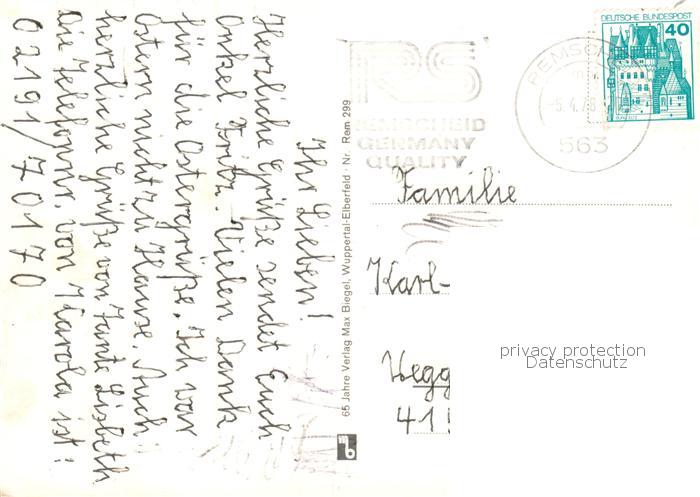 Ihr Lieben!
Herzliche Grüße sendet Euch
Onkel Fritz. Vielen Dank
für die Ostergrüße. Ich war
Ostern nicht zu Hause. Auch
herzliche Grüße von Tante Lisbeth
die Telefonnr. von Karola ist:
02191/70170
65 Jahre Verlag Max Biegel, Wuppertal-Elberfeld · Nr. Rem 299
mb
RS
REMSCHEID
GERMANY
QUALITY
REMSCH
-5.4.78
563
DEUTSCHE BUNDESPOST
40
BURG ELTZ
Familie
Karl-
Hegg
41
privacy protection
Datenschutz